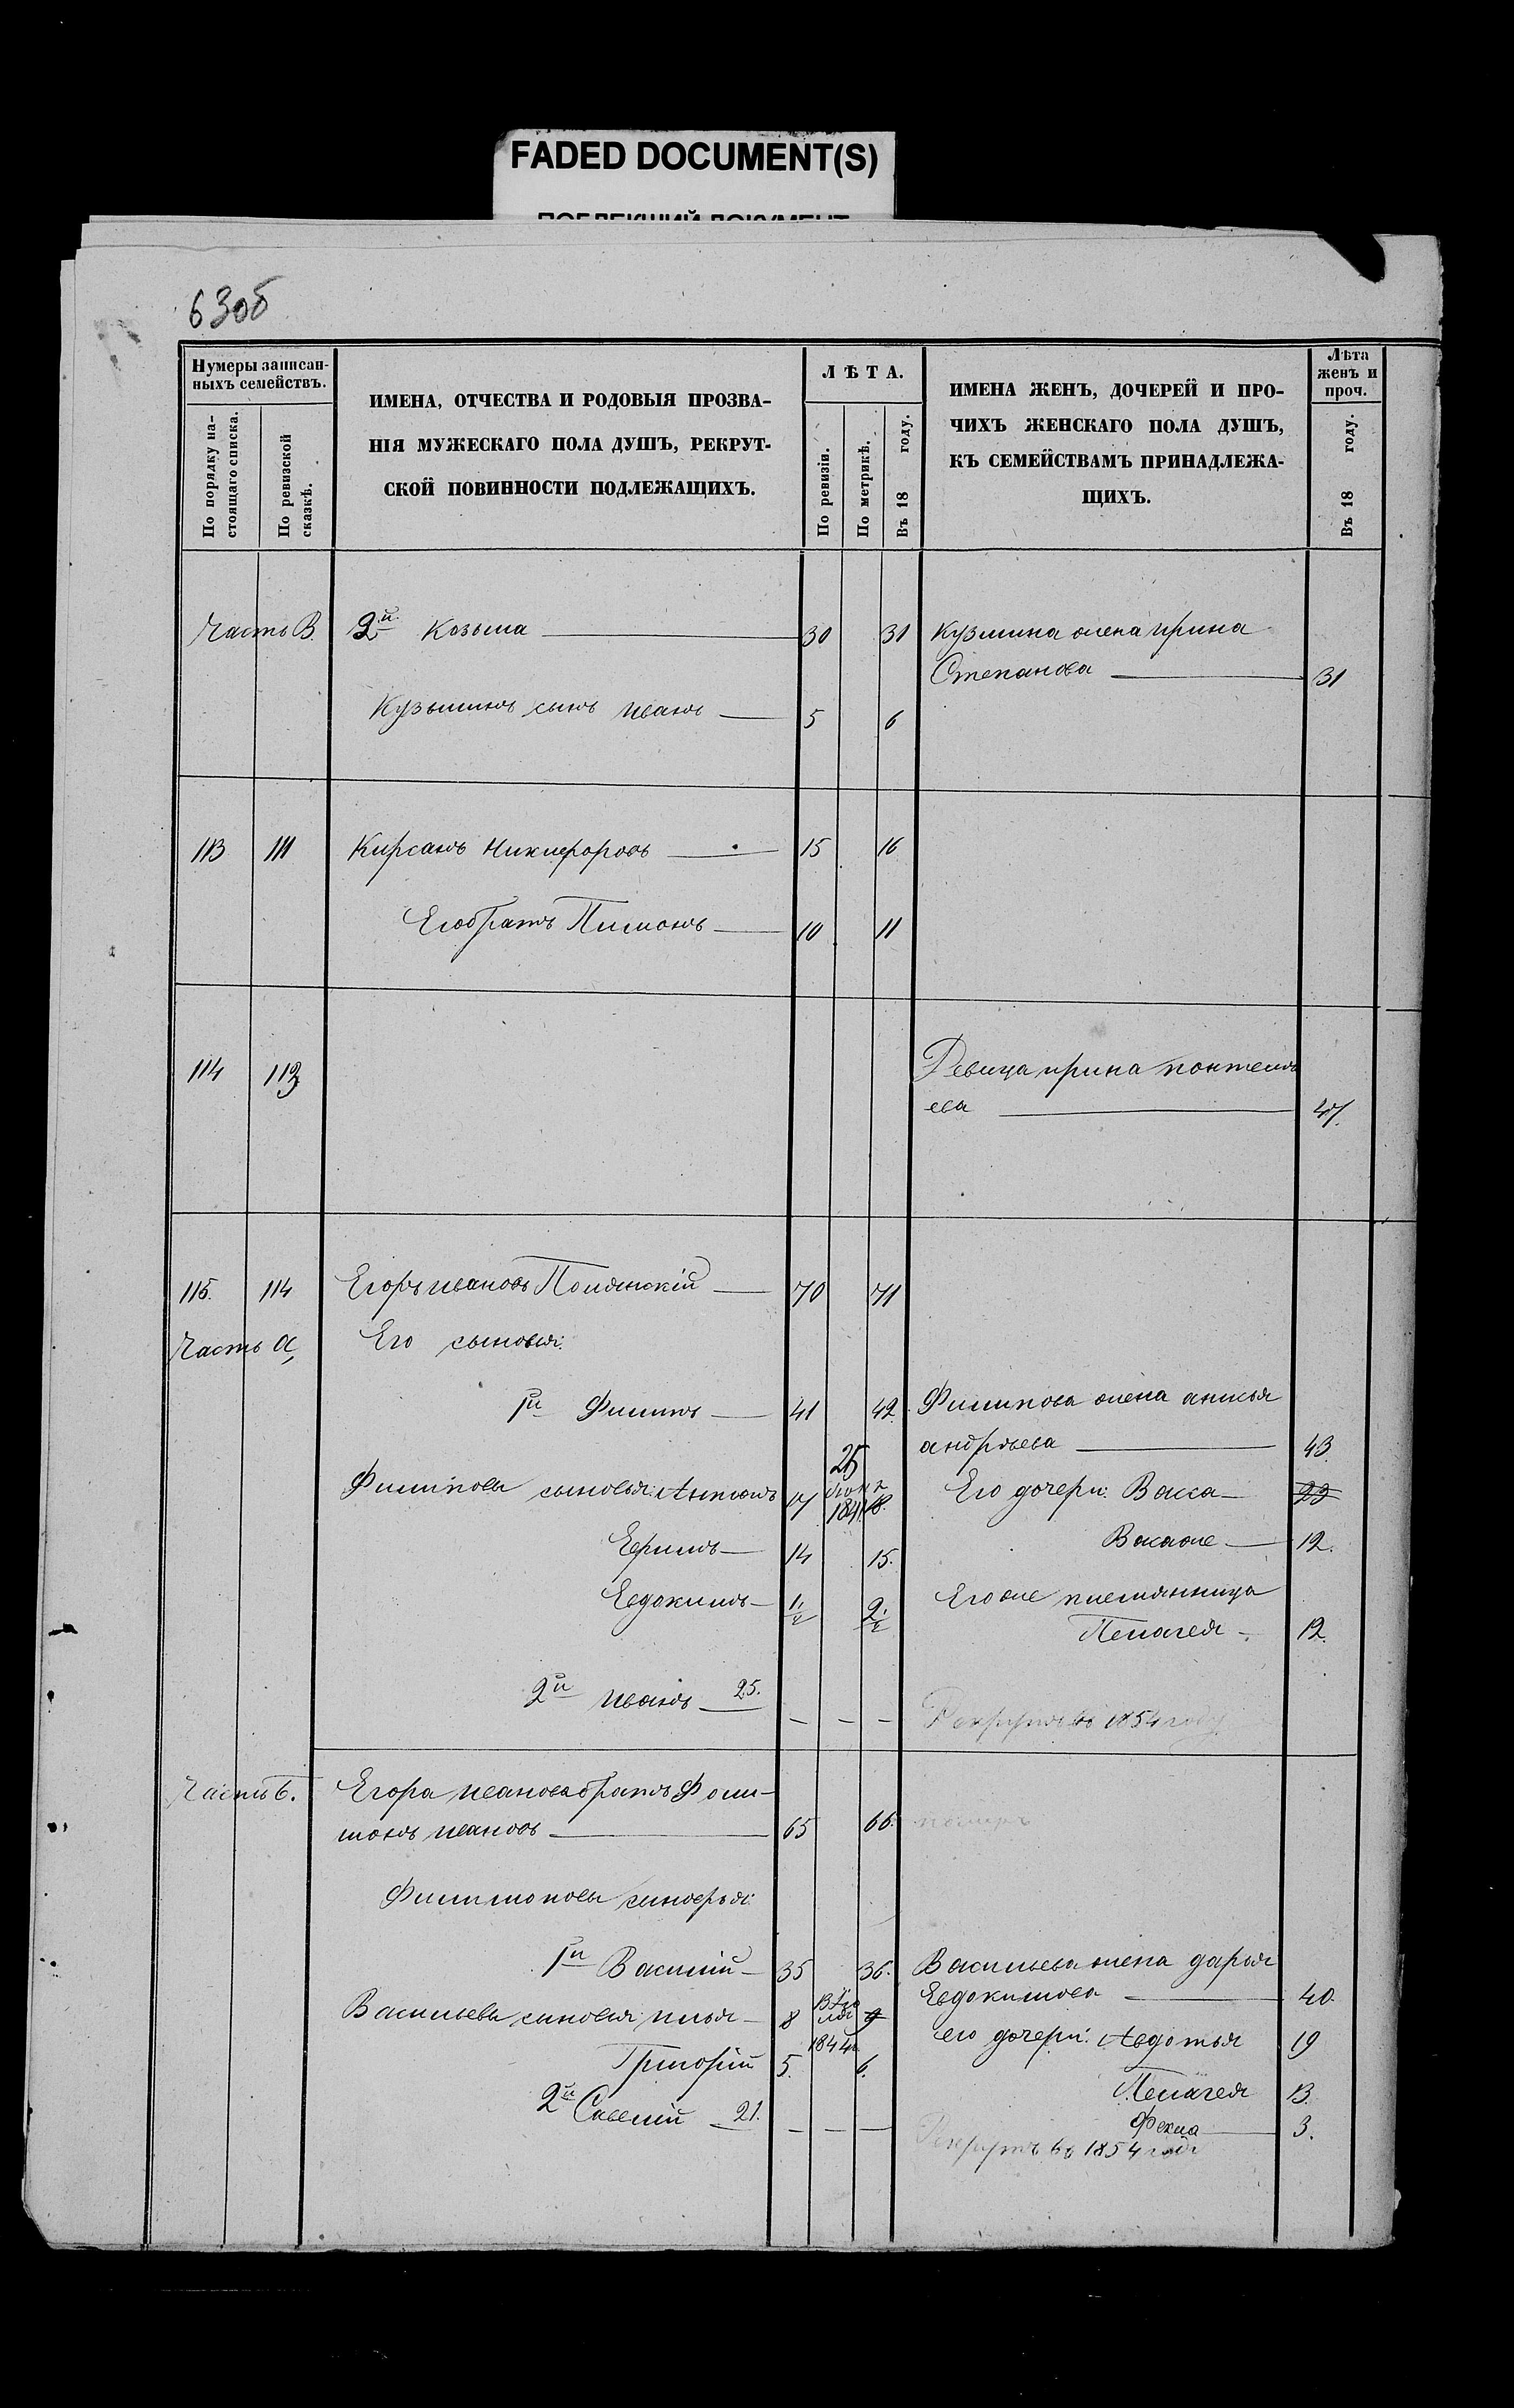 FADED DOCUMENT(S)
ПОБЛЕКШИЙ ДОКУМЕНТ
63об
Нумеры записан-
ныхъ семействъ.
По порядку на-
стоящаго списка.
По ревизской
сказкѣ.
ИМЕНА, ОТЧЕСТВА И РОДОВЫЯ ПРОЗВА-
НІЯ МУЖЕСКАГО ПОЛА ДУШЪ, РЕКРУТ-
СКОЙ ПОВИННОСТИ ПОДЛЕЖАЩИХЪ.
ЛѢТА.
По ревизіи.
По метрикѣ.
Въ 18 году.
ИМЕНА ЖЕНЪ, ДОЧЕРЕЙ И ПРО-
ЧИХЪ ЖЕНСКАГО ПОЛА ДУШЪ,
КЪ СЕМЕЙСТВАМЪ ПРИНАДЛЕЖА-
ЩИХЪ.
Лѣта
женъ и
проч.
Въ 18 году.
Часть В. 2й Козьма — 30 31 Кузмина жена ирина
Степанова — 31
Кузьминъ сынъ иванъ — 5 6
113 111 Кирсанъ Никифоровъ — 15 16
Его братъ Пимонъ — 10 11
114 113 Девица ирина
ева — 47.
115. 114 Егоръ ивановъ Полянскій — 70 71
Часть а, Его сыновья:
1й Филипъ — 41 42. Филипова жена анисья
андрѣева — 43.
25
Филиповы сыновья: Антонъ 17 1841 18. Его дочери: Васса — 22
Ефимъ — 14 15. Васа же — 12.
Евдокимъ — 1½ 2½ Его же племянница
Пелагея — 12.
2й иванъ 25. — — — Рекрутъ въ 1854 году
Часть б. Егора иванова братъ Фили-
монъ ивановъ — 65 66. померъ
Филимоновы синовья:
1й Василий — 35 36. Васильева жена дарья
Евдокимова — 40.
Васильевы синовья илья — 8 1844 9 его дочери: Авдотья 19
Григорій 5. 6. Пелагея 13.
2й Савелій 21. — — — Фекла — 3.
Рекрутъ въ 1854 годе